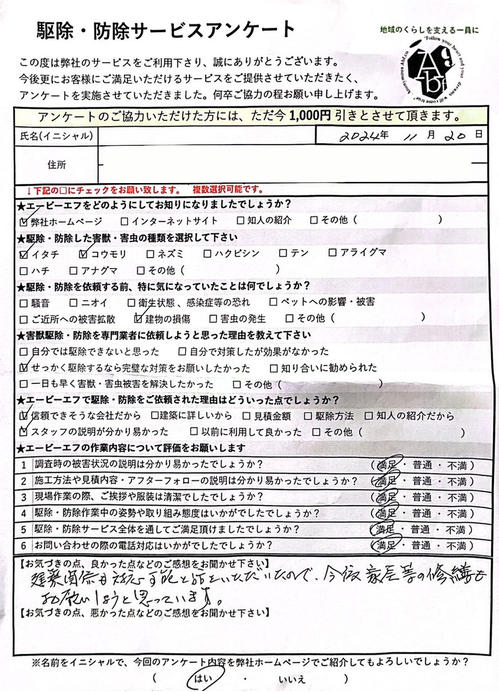 駆除・防除サービスアンケート
地域のくらしを支える一員に
この度は弊社のサービスをご利用下さり、誠にありがとうございます。
今後更にお客様にご満足いただけるサービスをご提供させていただきたく、
アンケートを実施させていただきました。何卒ご協力の程お願い申し上げます。
アンケートのご協力いただけた方には、ただ今1,000円引きとさせて頂きます。
氏名(イニシャル) 2024年 11月 20日
住所
↓下記の□にチェックをお願い致します。 複数選択可能です。
★エービーエフをどのようにしてお知りになりましたでしょうか?
☑弊社ホームページ □インターネットサイト □知人の紹介 □その他( )
★駆除・防除した害獣・害虫の種類を選択して下さい
☑イタチ ☑コウモリ □ネズミ □ハクビシン □テン □アライグマ
□ハチ □アナグマ □その他( )
★駆除・防除を依頼する前、特に気になっていたことは何でしょうか?
□騒音 □ニオイ □衛生状態、感染症等の恐れ □ペットへの影響・被害
□ご近所への被害拡散 ☑建物の損傷 □害虫の発生 □その他( )
★害獣駆除・防除を専門業者に依頼しようと思った理由を教えて下さい
□自分では駆除できないと思った □自分で対策したが効果がなかった
☑せっかく駆除するなら完璧な対策をお願いしたかった □知り合いに勧められた
□一日も早く害獣・害虫被害を解決したかった □その他( )
★エービーエフで駆除・防除をご依頼された理由はどういった点でしょうか?
☑信頼できそうな会社だから □建築に詳しいから □見積金額 □駆除方法 □知人の紹介だから
☑スタッフの説明が分かり易かった □以前に利用して良かった □その他( )
★エービーエフの作業内容について評価をお願いします
1 調査時の被害状況の説明は分かり易かったでしょうか? (満足・普通・不満)
2 施工方法や見積内容・アフターフォローの説明は分かり易かったでしょうか? (満足・普通・不満)
3 現場作業の際、ご挨拶や服装は清潔でしたでしょうか? (満足・普通・不満)
4 駆除・防除作業中の姿勢や取り組み態度はいかがでしたでしょうか? (満足・普通・不満)
5 駆除・防除サービス全体を通してご満足頂けましたでしょうか? (満足・普通・不満)
6 お問い合わせの際の電話対応はいかがでしたでしょうか? (満足・普通・不満)
【お気づきの点、良かった点などのご感想をお聞かせ下さい】
建築関係も対応可能と話していただいたので、今後家屋等の修繕も
お願いしようと思っています。
【お気づきの点、悪かった点などのご感想をお聞かせ下さい】
※名前をイニシャルで、今回のアンケート内容を弊社ホームページでご紹介してもよろしいでしょうか?
( はい ・ いいえ )